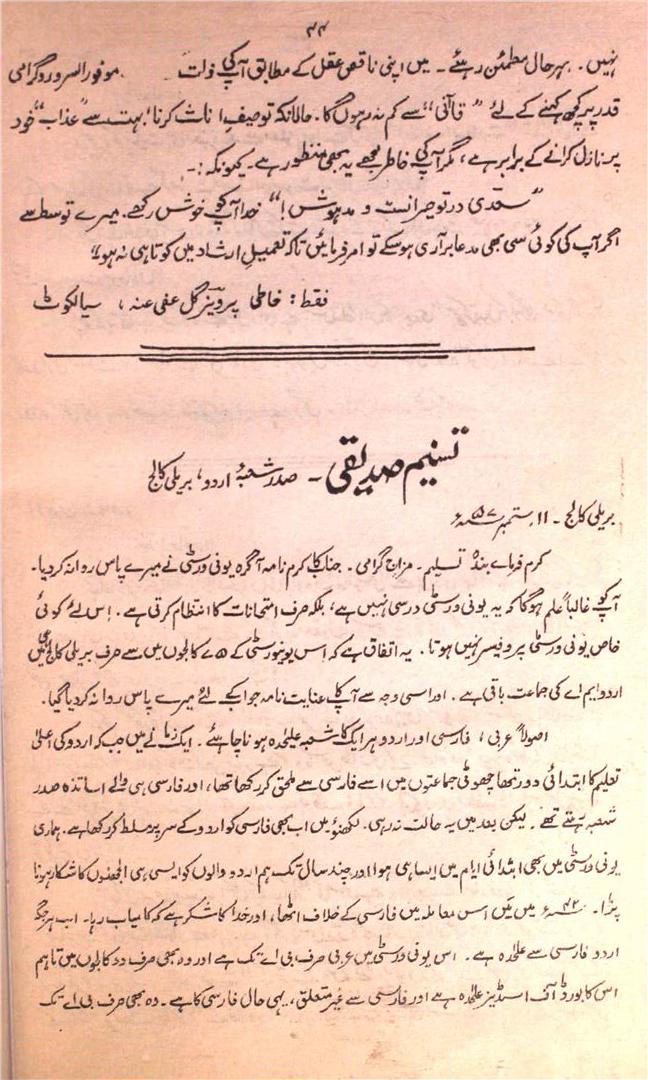 ۴۴
نہیں۔ بہرحال مطمئن رہئے۔ میں اپنی ناقص عقل کے مطابق آپ کی ذات موفور السرور و گرامی
قدر پر کچھ کہنے کے لئے "قاآنی" سے کم نہ رہوں گا۔ حالانکہ توصیفِ اناث کرنا، بہت سے "عذاب" خود
پر نازل کرانے کے برابر ہے، مگر آپ کی خاطر مجھے یہ بھی منظور ہے۔ کیونکہ:۔
"سعدی در تو حیرانست و مدہوش!" خدا آپ کو خوش رکھے۔ میرے توسط سے
اگر آپ کی کوئی سی بھی مدعا برآری ہو سکے تو امر فرمائیں تاکہ تعمیلِ ارشاد میں کوتاہی نہ ہو"
فقط: خاطی پرویز گل عفی عنہ، سیالکوٹ
تسنیم صدیقی۔ صدر شعبۂ اردو، بریلی کالج
بریلی کالج۔ ۱۱ ستمبر ۵۷ء
کرم فرمائے بندہ تسلیم۔ مزاج گرامی۔ جناب کا کرم نامہ آگرہ یونی ورسٹی نے میرے پاس روانہ کر دیا۔
آپ کو غالباً علم ہوگا کہ یہ یونی ورسٹی درسی نہیں ہے، بلکہ صرف امتحانات کا انتظام کرتی ہے۔ اِس لئے کوئی
خاص یونی ورسٹی پروفیسر نہیں ہوتا۔ یہ اتفاق ہے کہ اس یونیورسٹی کے ۷۵ کالجوں میں سے صرف بریلی کالج ہی میں
اردو ایم اے کی جماعت باقی ہے۔ اور اسی وجہ سے آپ کا عنایت نامہ جواب کے لئے میرے پاس روانہ کر دیا گیا۔
اصولاً عربی، فارسی اور اردو ہر ایک کا شعبہ علیٰحدہ ہونا چاہئے۔ ایک زمانے میں جب کہ اردو کی اعلیٰ
تعلیم کا ابتدائی دور تھا چھوٹی جماعتوں میں اسے فارسی سے ملحق کر رکھا تھا، اور فارسی ہی والے اساتذہ صدر
شعبہ رہتے تھے۔ لیکن بعد میں یہ حالت نہ رہی۔ لکھنؤ میں اب بھی فارسی کو اردو کے سر پر مسلط کر رکھا ہے۔ ہماری
یونی ورسٹی میں بھی ابتدائی ایام میں ایسا ہی ہوا اور چند سال تک ہم اردو والوں کو ایسی ہی الجھنوں کا شکار ہونا
پڑا۔ ۴۲ء میں میں اس معاملہ میں فارسی کے خلاف اٹھا، اور خدا کا شکر ہے کہ کامیاب رہا۔ اب ہر جگہ
اردو فارسی سے علیٰحدہ ہے۔ اس یونی ورسٹی میں عربی صرف بی اے تک ہے اور وہ بھی صرف دو کالجوں میں تاہم
اس کا بورڈ آف اسٹڈیز علیٰحدہ ہے اور فارسی سے غیر متعلق، یہی حال فارسی کا ہے۔ وہ بھی صرف بی اے تک